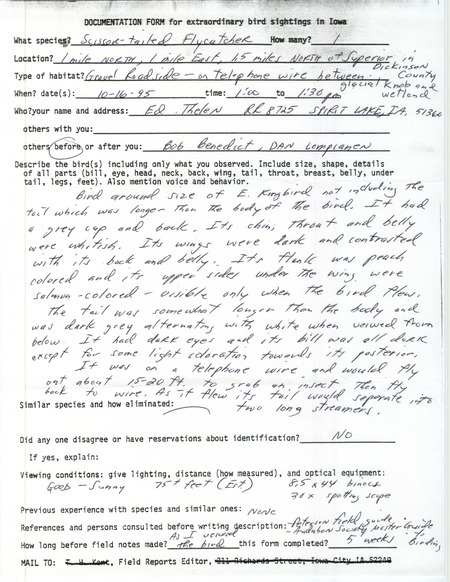 DOCUMENTATION FORM for extraordinary bird sightings in Iowa
What species? Scissor-tailed Flycatcher How many? 1
Location? 1 mile North, 1 mile East, 1.5 miles North of Superior in Dickinson County
Type of habitat? Gravel Roadside - on telephone wire between glacial knob and wetland
When? date(s): 10-16-95 time: 1:00 to 1:30 pm
Who? your name and address: Ed Thelen RR 8725 SPIRIT LAKE, IA. 51360
others with you:
others before or after you: Bob Benedict, DAN
Describe the bird(s) including only what you observed. Include size, shape, details
of all parts (bill, eye, head, neck, back, wing, tail, throat, breast, belly, under
tail, legs, feet). Also mention voice and behavior.
Bird around size of E. Kingbird not including the
tail which was longer than the body of the bird. It had
a grey cap and back. Its chin, throat and belly
were whitish. Its wings were dark and contrasted
with its back and belly. Its flank was peach
colored and its upper sides under the wing were
salmon-colored - visible only when the bird flew.
The tail was somewhat longer than the body and
was dark grey alternating with white when veiwed from
below. It had dark eyes and its bill was all dark
except for some light coloration towards its posterior.
It was on a telephone wire and would fly
out about 15-20 ft. to grab an insect then fly
back to wire. As it flew its tail would separate into
two long streamers.
Similar species and how eliminated:
Did any one disagree or have reservations about identification? NO
If yes, explain:
Viewing conditions: give lighting, distance (how measured), and optical equipment:
Good - Sunny 75+ feet (Est) 8.5 x 44 binocs
20x spotting scope
Previous experience with species and similar ones: NONE
References and persons consulted before writing description: -Peterson field guide
-Audubon Society Master Guide to Birding
How long before field notes made? As I veiwed the bird this form completed? 5 weeks
MAIL TO: T. H. Kent, Field Reports Editor, 211 Richards Street, Iowa City IA 52240